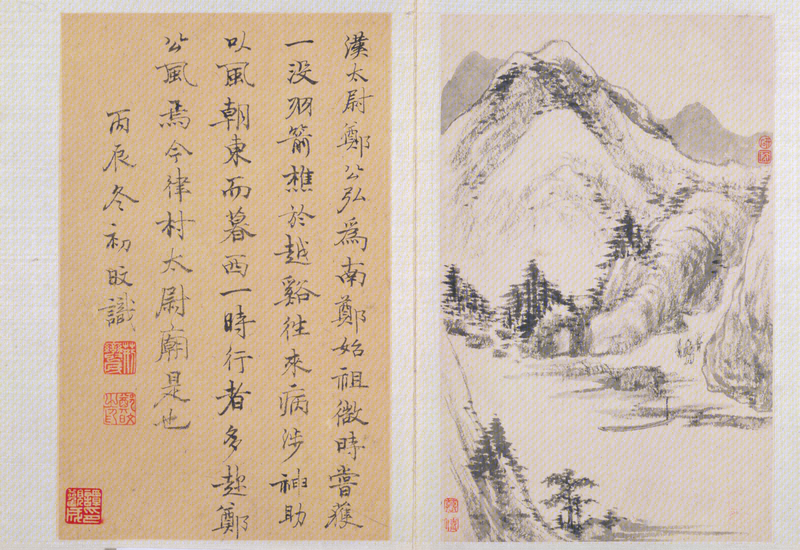 漢太尉鄭公弘為南鄭始祖微時嘗獲
一沒羽箭樵於越谿往來病涉神助
以風朝東而暮西一時行者多趂鄭
公風焉今律村太尉廟是也
丙辰冬初旼識